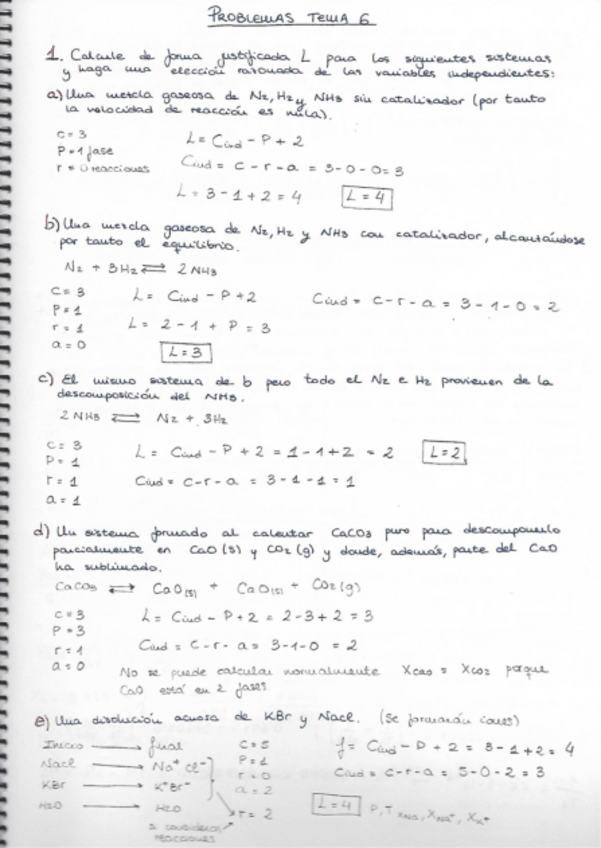 PROBLEMAS TEMA 6
1. Calcule de forma justificada L para los siguientes sistemas
y haga una elección razonada de las variables independientes:
a) Una mezcla gaseosa de N2, H2 y NH3 sin catalizador (por tanto
la velocidad de reacción es nula).
c = 3
P = 1 fase
r = 0 reacciones
L = Cind - P + 2
Cind = c - r - a = 3-0-0 = 3
L = 3 - 1 + 2 = 4
L = 4
b) Una mezcla gaseosa de N2, H2 y NH3 con catalizador, alcanzándose
por tanto el equilibrio.
N2 + 3H2 ⇄ 2NH3
c = 3
P = 1
r = 1
a = 0
L = Cind - P + 2
Cind = c - r - a = 3 - 1 - 0 = 2
L = 2 - 1 + P = 3
L = 3
c) El mismo sistema de b pero todo el N2 e H2 provienen de la
descomposición del NH3.
2 NH3 ⇄ N2 + 3H2
c = 3
P = 1
r = 1
a = 1
L = Cind - P + 2 = 1 - 1 + 2 = 2
L = 2
Cind = c - r - a = 3 - 1 - 1 = 1
d) Un sistema formado al calentar CaCO3 puro para descomponerlo
parcialmente en CaO (s) y CO2 (g) y donde, además, parte del CaO
ha sublimado.
CaCO3 ⇄ CaO(s) + CaO(s) + CO2(g)
c = 3
P = 3
r = 1
a = 0
L = Cind - P + 2 = 2 - 3 + 2 = 3
Cind = c - r - a = 3-1-0 = 2
No se puede calcular normalmente XCaO = XCO2 porque
CaO está en 2 fases
e) Una disolución acuosa de KBr y NaCl. (Se formarán iones)
Inicio → final
NaCl → Na+ Cl-
KBr → K+ Br-
H2O → H2O
c = 5
P = 1
r = 0
a = 2
r = 2
si consideras
reacciones
f = Cind - P + 2 = 3 - 1 + 2 = 4
Cind = c - r - a = 5 - 0 - 2 = 3
L = 4
P, T, XNa+, XK+